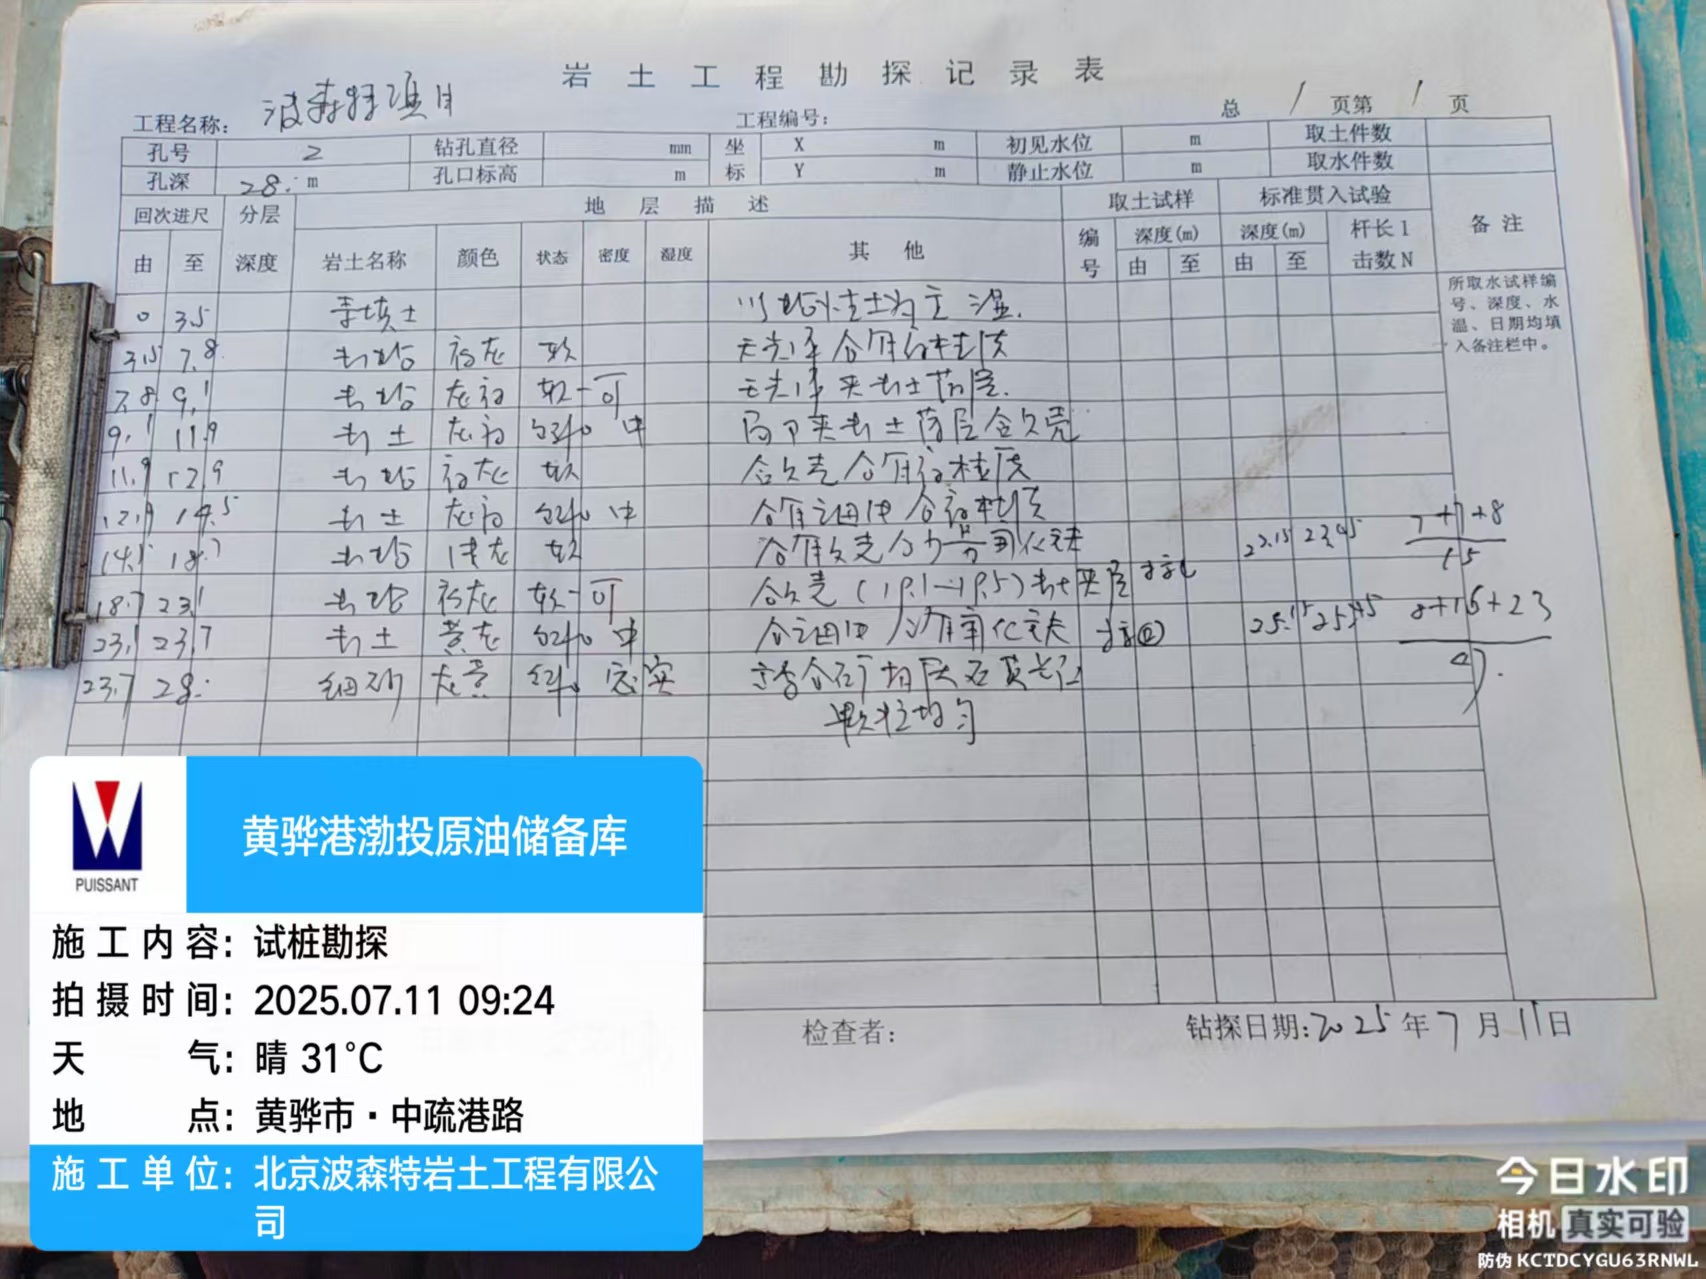 岩土工程勘探记录表
工程名称: 波森特项目 工程编号: 总 1 页第 1 页
孔号 2 钻孔直径 mm 坐标 X m 初见水位 m 取土件数
孔深 28. m 孔口标高 m Y m 静止水位 m 取水件数
回次进尺 分层深度 地层描述 取土试样 标准贯入试验 备注
由 至 岩土名称 颜色 状态 密度 湿度 其他 编号 深度(m) 由 至 深度(m) 由 至 杆长1 击数N
所取水试样编号、深度、水温、日期均填入备注栏中。
0 3.5 素填土 以粘性土为主 湿.
3.5 7.8 粉粘 褐灰 软 无光泽 含有机质
7.8 9.1 粉粘 灰褐 软-可 无光泽 夹粉土薄层.
9.1 11.9 粉土 灰褐 中 局部夹粉土薄层含贝壳
11.9 12.9 粉粘 褐灰 软 含贝壳 含有机质
12.9 14.5 粉土 灰褐 中 含有
14.5 18.7 粉粘 灰 软 含 氧化铁 22.15 22.45 7+7+8 15
18.7 23.1 粉粘 褐灰 软-可 含贝壳 (19.1-19.5) 粉土夹层
23.1 23.7 粉土 黄灰 中 含云母 氧化铁 25.15 25.45 8+16+23
23.7 28. 细砂 灰黄 密实 石英长石
颗粒均匀
PUISSANT
黄骅港渤投原油储备库
施工内容: 试桩勘探
拍摄时间: 2025.07.11 09:24
天气: 晴 31°C
地点: 黄骅市·中疏港路
施工单位: 北京波森特岩土工程有限公司
检查者: 钻探日期: 2025 年 7 月 11 日
今日水印
相机 真实可验
防伪 KCTDCYGU63RNWL